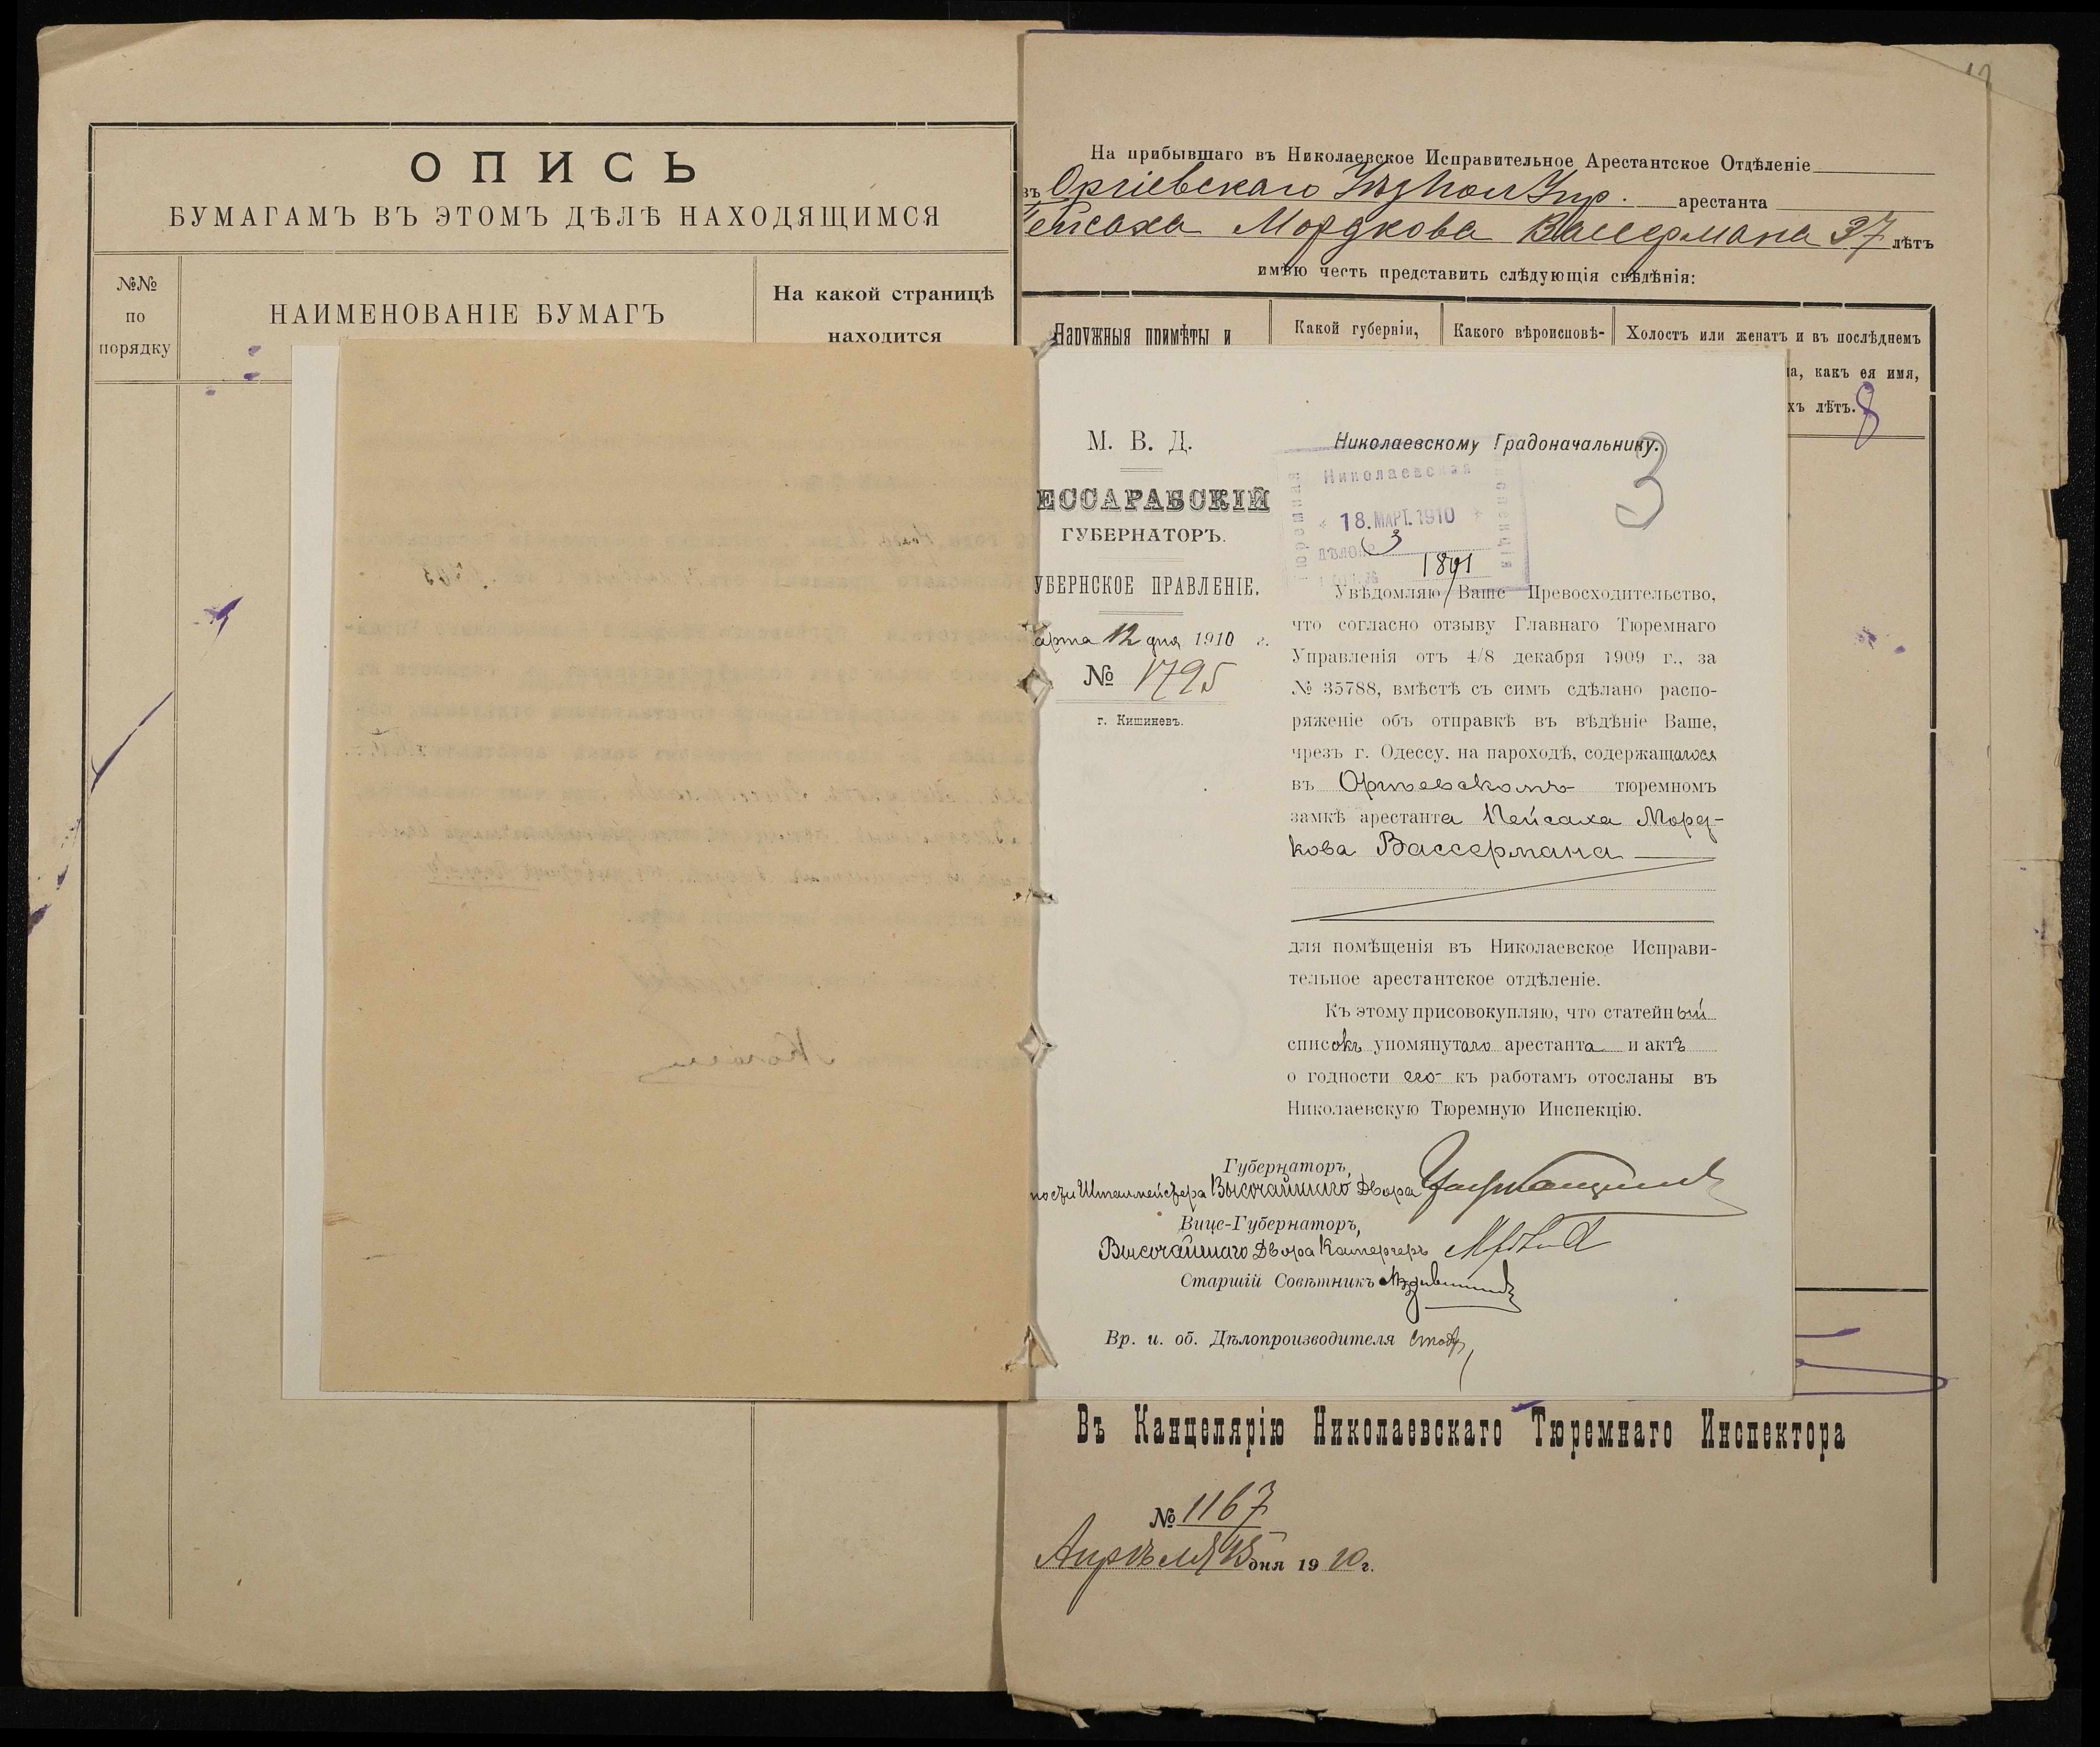 ОПИСЬ
БУМАГАМЪ ВЪ ЭТОМЪ ДѢЛѢ НАХОДЯЩИМСЯ
№№
по
порядку
НАИМЕНОВАНІЕ БУМАГЪ
На какой страницѣ
находится
На прибывшаго въ Николаевское Исправительное Арестантское Отдѣленіе
въ Оргіевскаго Уѣздного Упр. арестанта
Пейсаха Мордкова Вассермана 37 лѣтъ
имѣю честь представить слѣдующія свѣдѣнія:
Наружныя примѣты и
Какой губерніи,
Какого вѣроисповѣ-
Холостъ или женатъ и въ послѣднемъ
какъ ея имя,
лѣтъ.
8
М. В. Д.
ЕССАРАБСКІЙ
ГУБЕРНАТОРЪ.
УБЕРНСКОЕ ПРАВЛЕНІЕ.
арта 12 дня 1910 г.
№ 1795
г. Кишиневъ.
Николаевскому Градоначальнику.
3
Николаевская
18. МАРТ. 1910
3
1891
Увѣдомляю Ваше Превосходительство,
что согласно отзыву Главнаго Тюремнаго
Управленія отъ 4/8 декабря 1909 г., за
№ 35788, вмѣстѣ съ симъ сдѣлано распо-
ряженіе объ отправкѣ въ вѣдѣніе Ваше,
чрезъ г. Одессу, на пароходѣ, содержащагося
въ Оргѣевскомъ тюремномъ
замкѣ арестанта Пейсаха Морд-
кова Вассермана
для помѣщенія въ Николаевское Исправи-
тельное арестантское отдѣленіе.
Къ этому присовокупляю, что статейный
списокъ упомянутаго арестанта и актъ
о годности его къ работамъ отосланы въ
Николаевскую Тюремную Инспекцію.
Губернаторъ,
Шталмейстера Высочайшаго Двора
Вице-Губернаторъ,
Высочайшаго Двора Камергеръ
Старшій Совѣтникъ
Вр. и. об. Дѣлопроизводителя
Въ Канцелярію Николаевскаго Тюремнаго Инспектора
№ 1167
Апрѣля 15 дня 1910 г.